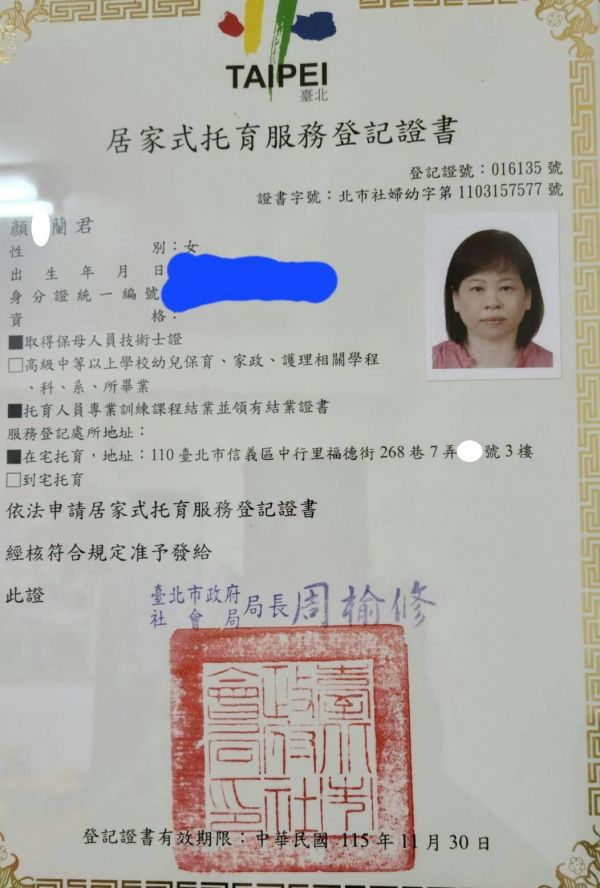 TAIPEI
臺北
居家式托育服務登記證書
登記證號：016135 號
證書字號：北市社婦幼字第 1103157577 號
顏 蘭君
性別：女
出生年月日
身分證統一編號
資格：
■取得保母人員技術士證
□高級中等以上學校幼兒保育、家政、護理相關學程
、科、系、所畢業
■托育人員專業訓練課程結業並領有結業證書
服務登記處所地址：
■在宅托育，地址：110 臺北市信義區中行里福德街 268 巷 7 弄 號 3 樓
□到宅托育
依法申請居家式托育服務登記證書
經核符合規定准予發給
此證
臺北市政府
社會局局長周榆修
臺北市
政府社
會局印
登記證書有效期限：中華民國 115 年 11 月 30 日